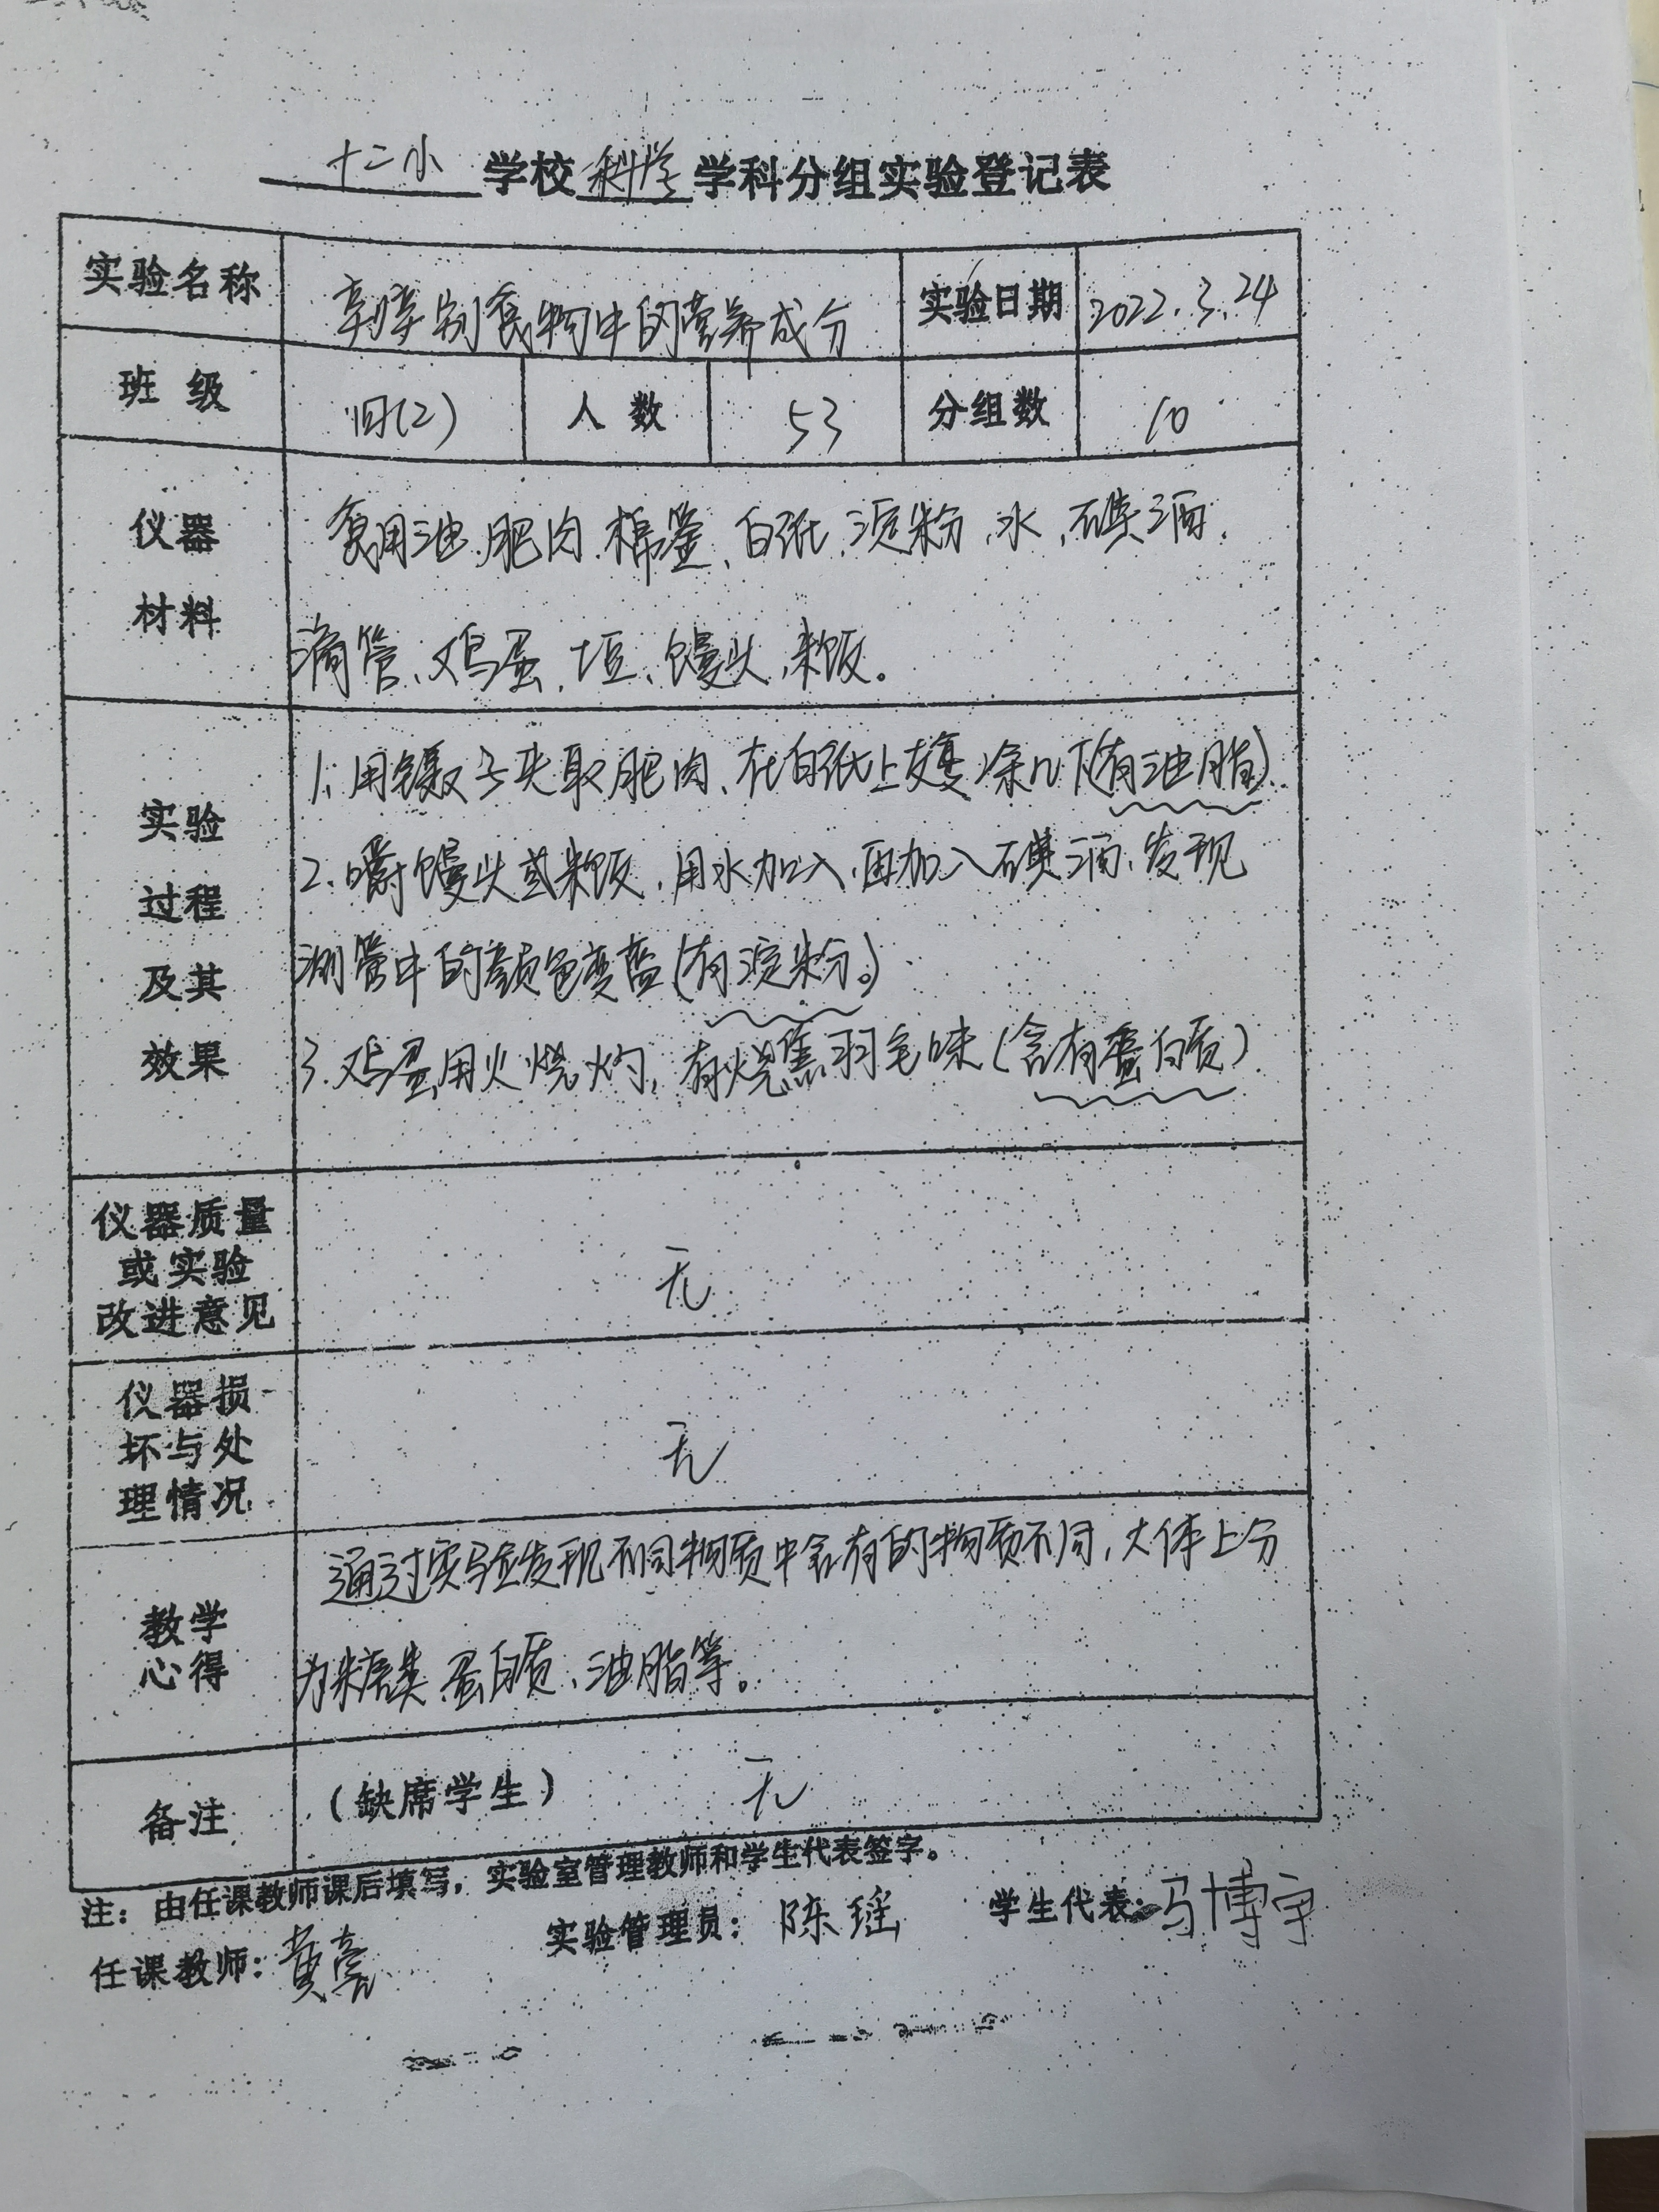 十二小 学校 科学 学科分组实验登记表
实验名称 辨别食物中的营养成分 实验日期 2022.3.24
班级 (2) 人数 53 分组数 10
仪器
材料
食用油、肥肉、棉签、白纸、淀粉、水、碘酒、
滴管、鸡蛋、土豆、馒头、米饭。
实验
过程
及其
效果
1、用镊子夹取肥肉、在白纸上反复涂几下(有油脂).
2.嚼馒头或米饭,用水加入,再加入碘酒、发现
测管中的颜色变蓝(有淀粉。)
3.鸡蛋用火烧灼,有烧焦羽毛味(含有蛋白质).
仪器质量
或实验
改进意见
无
仪器损
坏与处
理情况
无
教学
心得
通过实验发现不同物质中含有的物质不同,大体上分
为糖类、蛋白质、油脂等。
备注 (缺席学生) 无
注:由任课教师课后填写,实验室管理教师和学生代表签字。
任课教师:黄亮 实验管理员:陈瑶 学生代表:马博宇